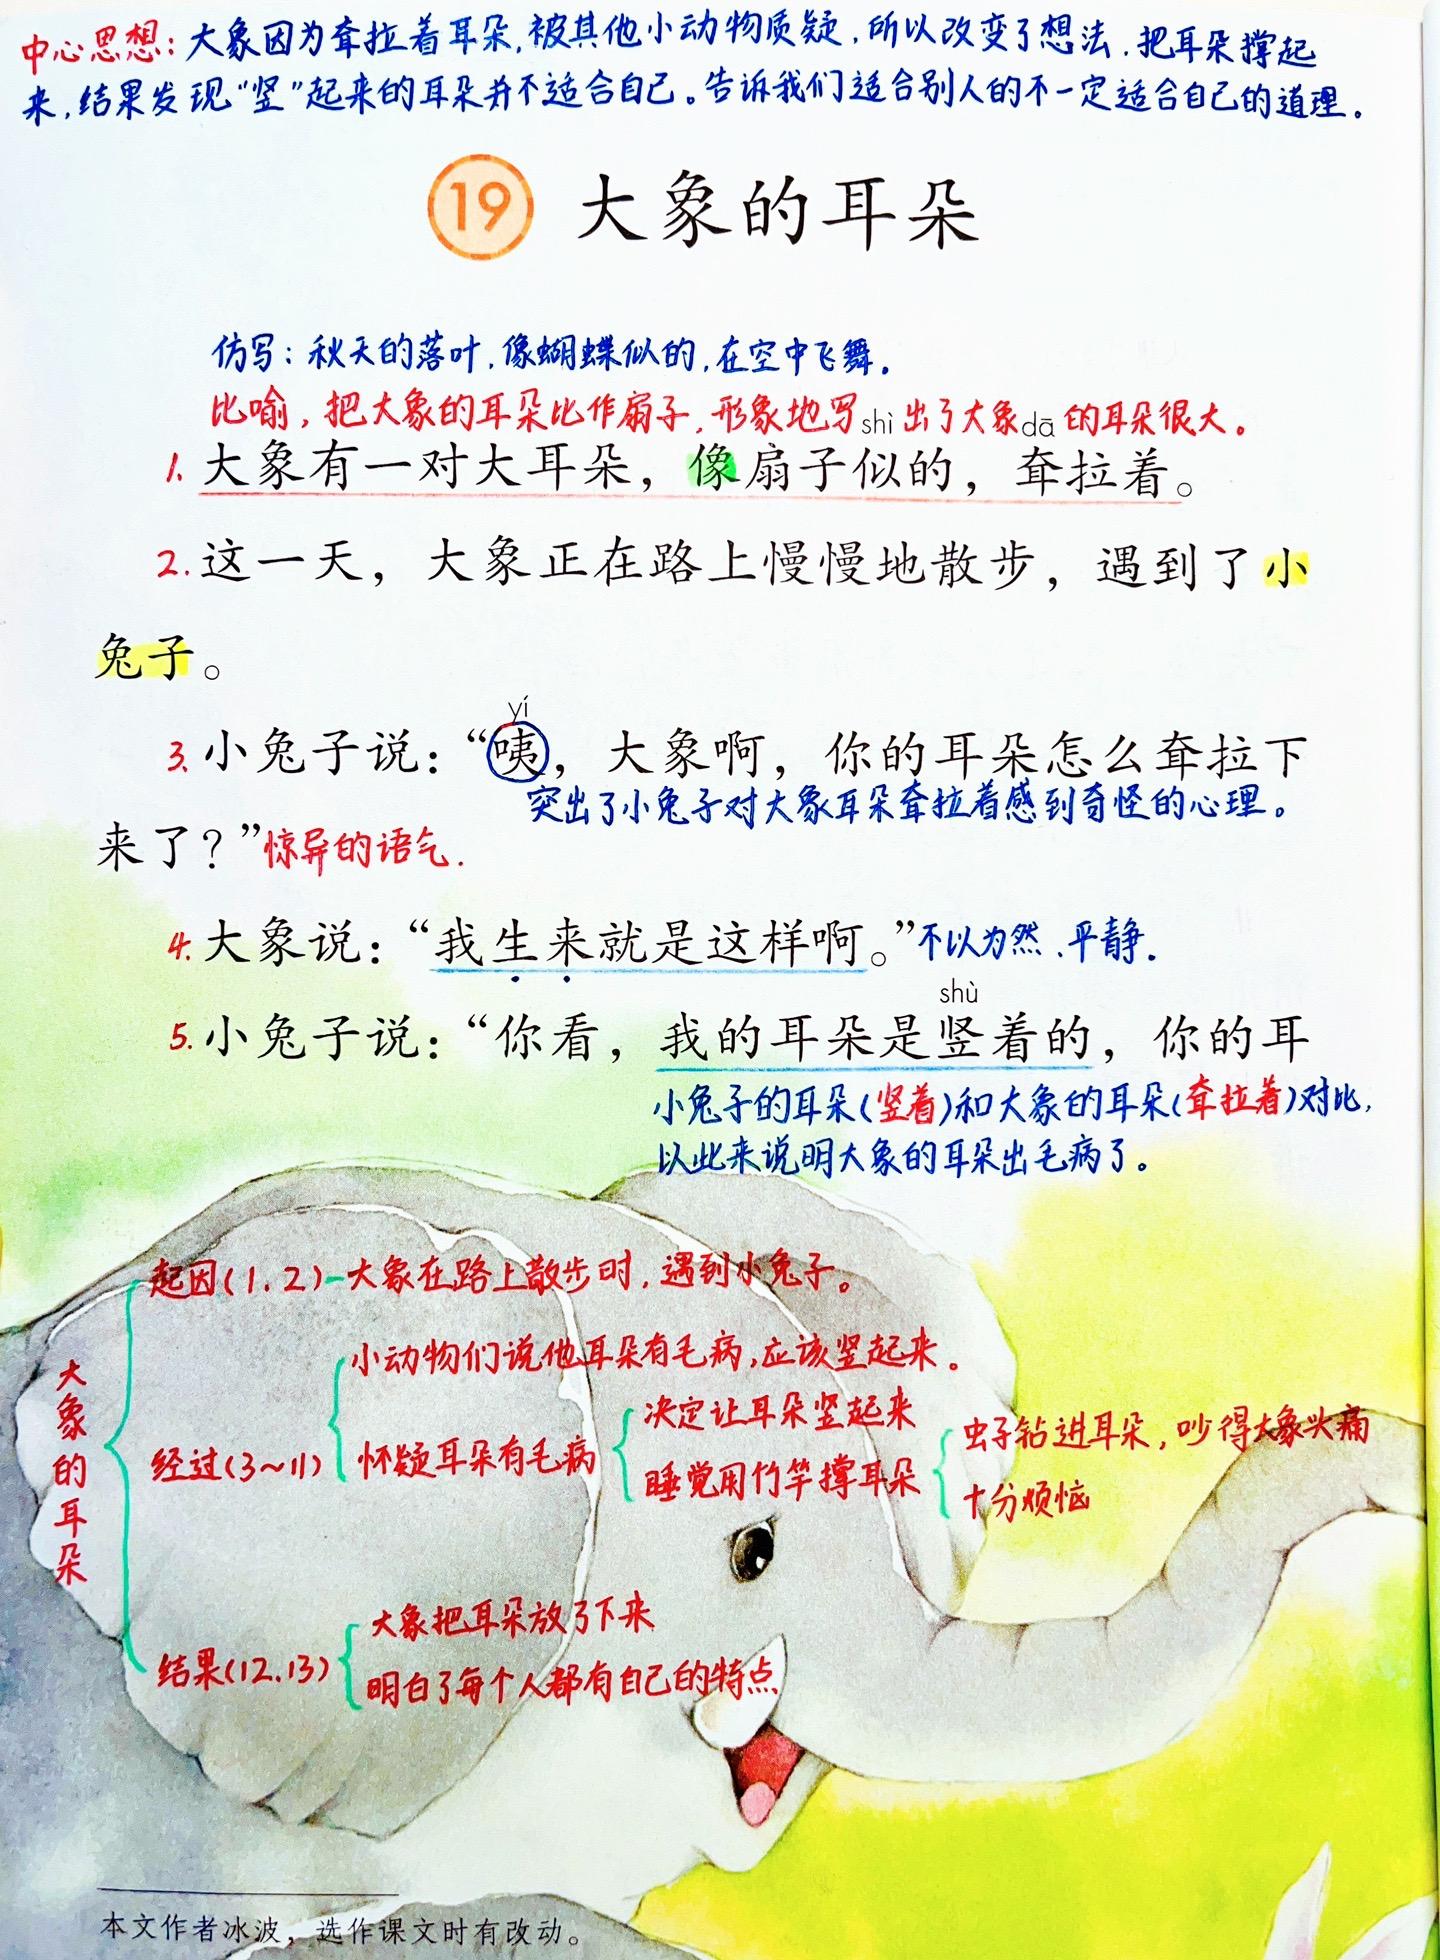 中心思想：大象因为耷拉着耳朵，被其他小动物质疑，所以改变了想法，把耳朵撑起
来，结果发现“竖”起来的耳朵并不适合自己。告诉我们适合别人的不一定适合自己的道理。
19 大象的耳朵
仿写：秋天的落叶，像蝴蝶似的，在空中飞舞。
比喻，把大象的耳朵比作扇子，形象地写出了大象的耳朵很大。
shì dā
1. 大象有一对大耳朵，像扇子似的，耷拉着。
2. 这一天，大象正在路上慢慢地散步，遇到了小
兔子。
yí
3. 小兔子说：“咦，大象啊，你的耳朵怎么耷拉下
突出了小兔子对大象耳朵耷拉着感到奇怪的心理。
来了？”惊异的语气．
4. 大象说：“我生来就是这样啊。”不以为然、平静．
shù
5. 小兔子说：“你看，我的耳朵是竖着的，你的耳
小兔子的耳朵（竖着）和大象的耳朵（耷拉着）对比，
以此来说明大象的耳朵出毛病了。
大象的耳朵
起因（1、2）-大象在路上散步时，遇到小兔子。
经过（3～11）
小动物们说他耳朵有毛病，应该竖起来。
怀疑耳朵有毛病
决定让耳朵竖起来
睡觉用竹竿撑耳朵
虫子钻进耳朵，吵得大象头痛
十分烦恼
结果（12、13）
大象把耳朵放了下来
明白了每个人都有自己的特点
本文作者冰波，选作课文时有改动。